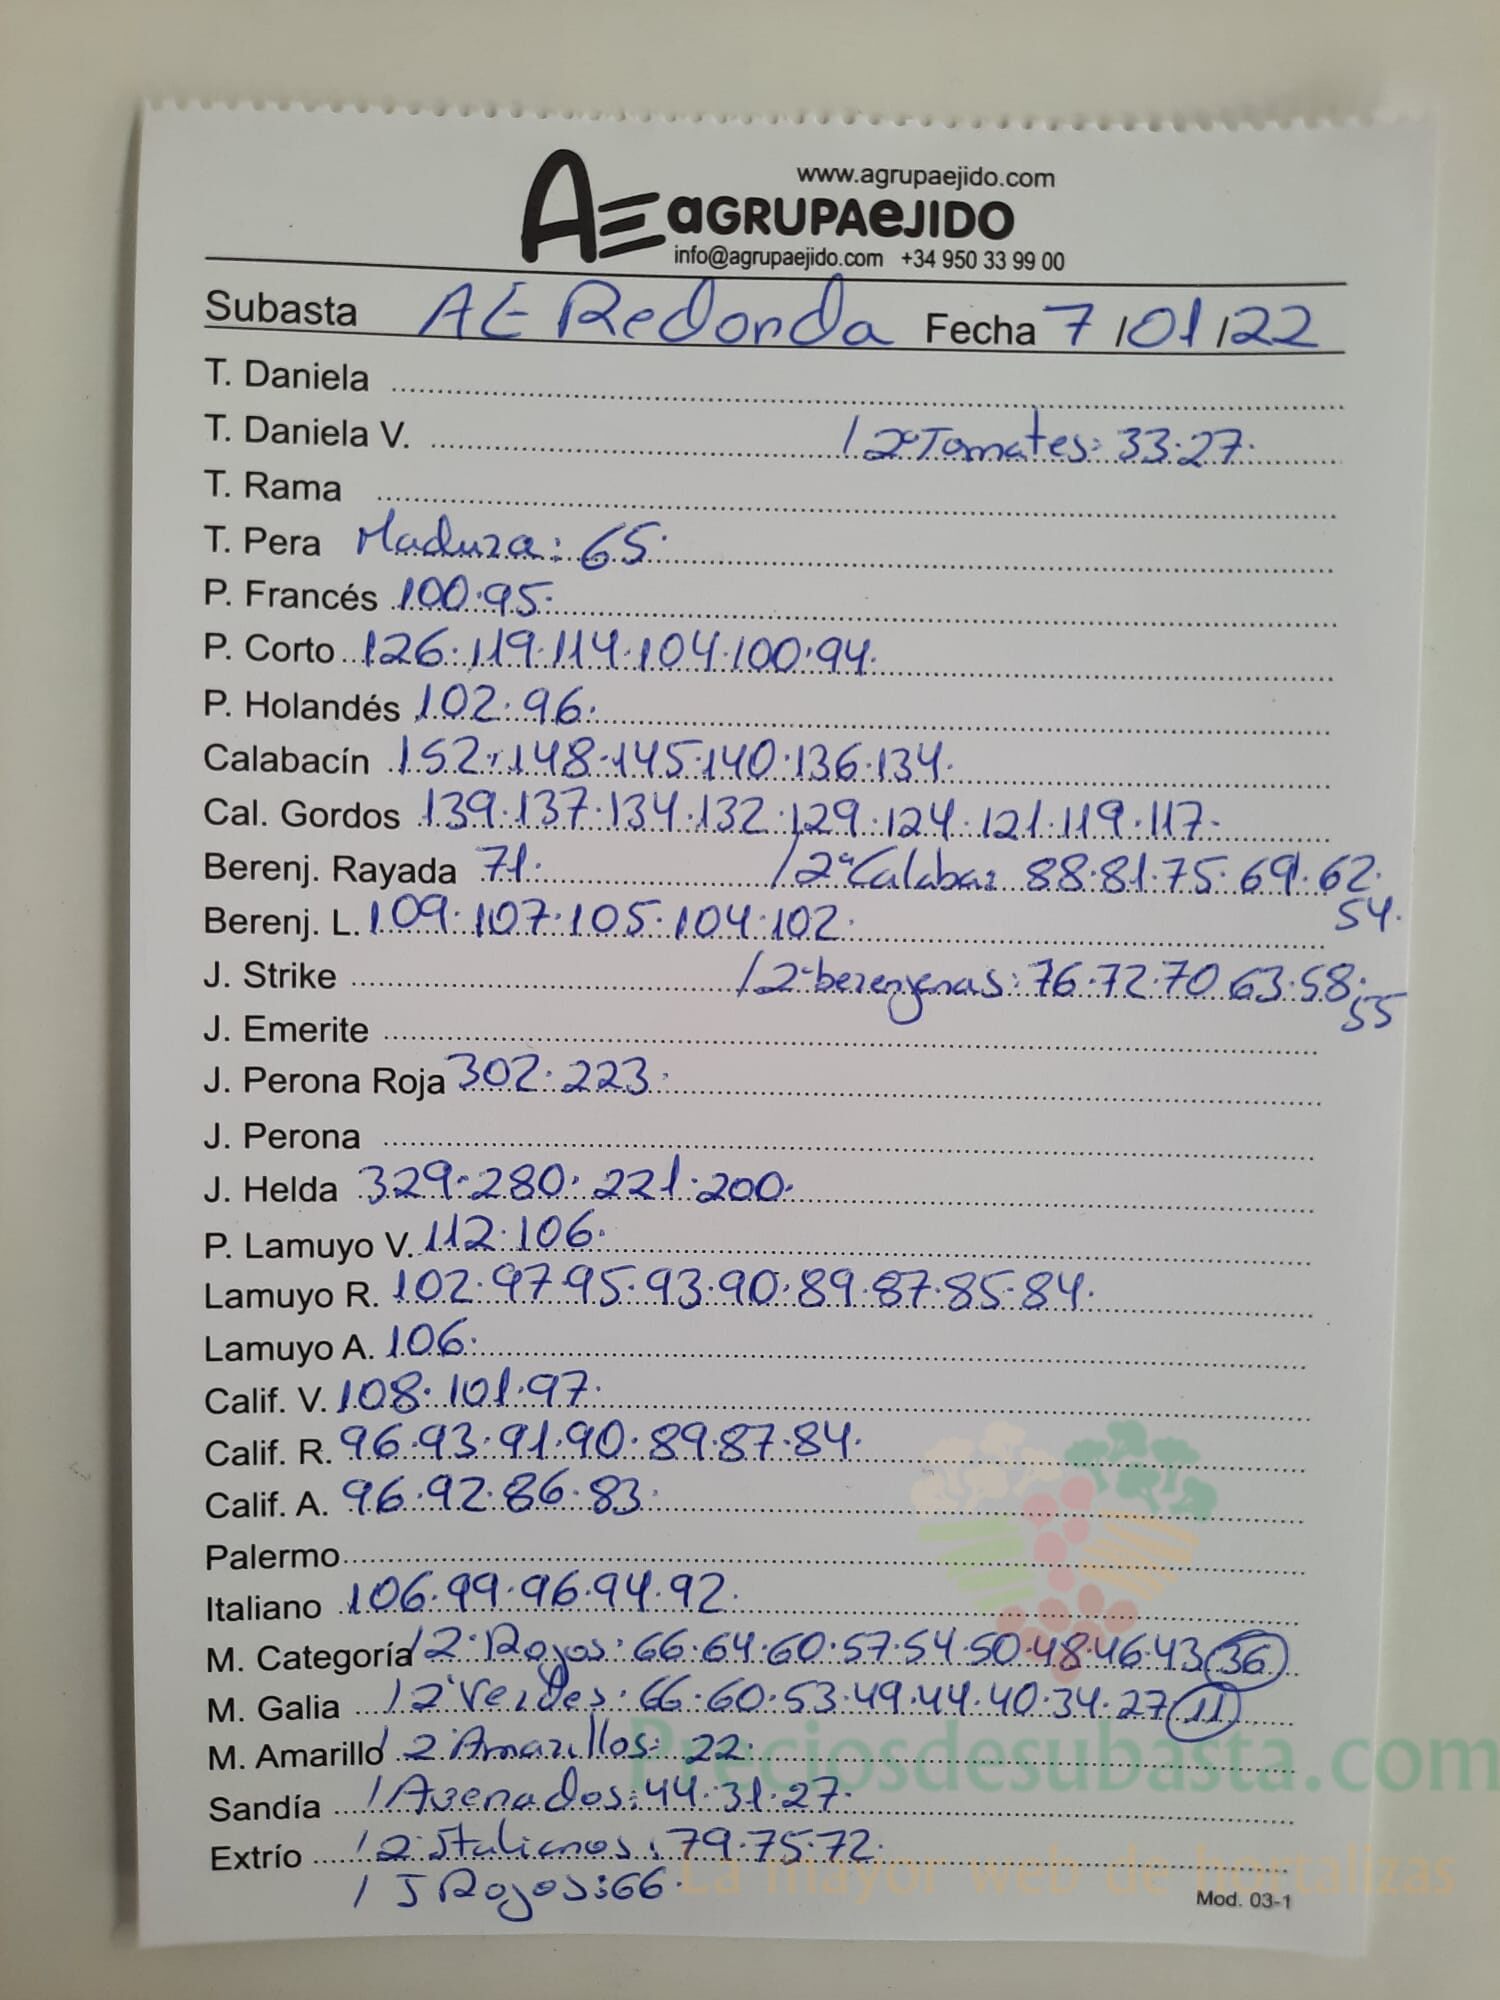 www.agrupaejido.com
AE aGRUPAeJIDO
info@agrupaejido.com +34 950 33 99 00
Subasta AE Redonda Fecha 7/01/22
T. Daniela
T. Daniela V. / 2ª Tomates: 33.27.
T. Rama
T. Pera Madura: 65.
P. Francés 100.95.
P. Corto 126.119.114.104.100.94.
P. Holandés 102.96.
Calabacín 152.148.145.140.136.134.
Cal. Gordos 139.137.134.132.129.124.121.119.117.
Berenj. Rayada 71. / 2ª Calabaz 88.81.75.69.62.
54.
Berenj. L. 109.107.105.104.102.
J. Strike / 2ª berenjenas: 76.72.70.63.58.
55
J. Emerite
J. Perona Roja 302.223.
J. Perona
J. Helda 329.280.221.200.
P. Lamuyo V. 112.106.
Lamuyo R. 102.97.95.93.90.89.87.85.84.
Lamuyo A. 106.
Calif. V. 108.101.97.
Calif. R. 96.93.91.90.89.87.84.
Calif. A. 96.92.86.83.
Palermo
Italiano 106.99.96.94.92.
M. Categoría / 2ª Rojos: 66.64.60.57.54.50.48.46.43 36
M. Galia / 2ª Verdes: 66.60.53.49.44.40.34.27 11
M. Amarillo / 2ª Amarillos: 22.
Sandía / Asenados: 44.31.27.
Extrío / 2ª Italianos: 79.75.72.
/ J Rojos: 66.
Mod. 03-1
Preciosdesubasta.com
La mayor web de hortalizas